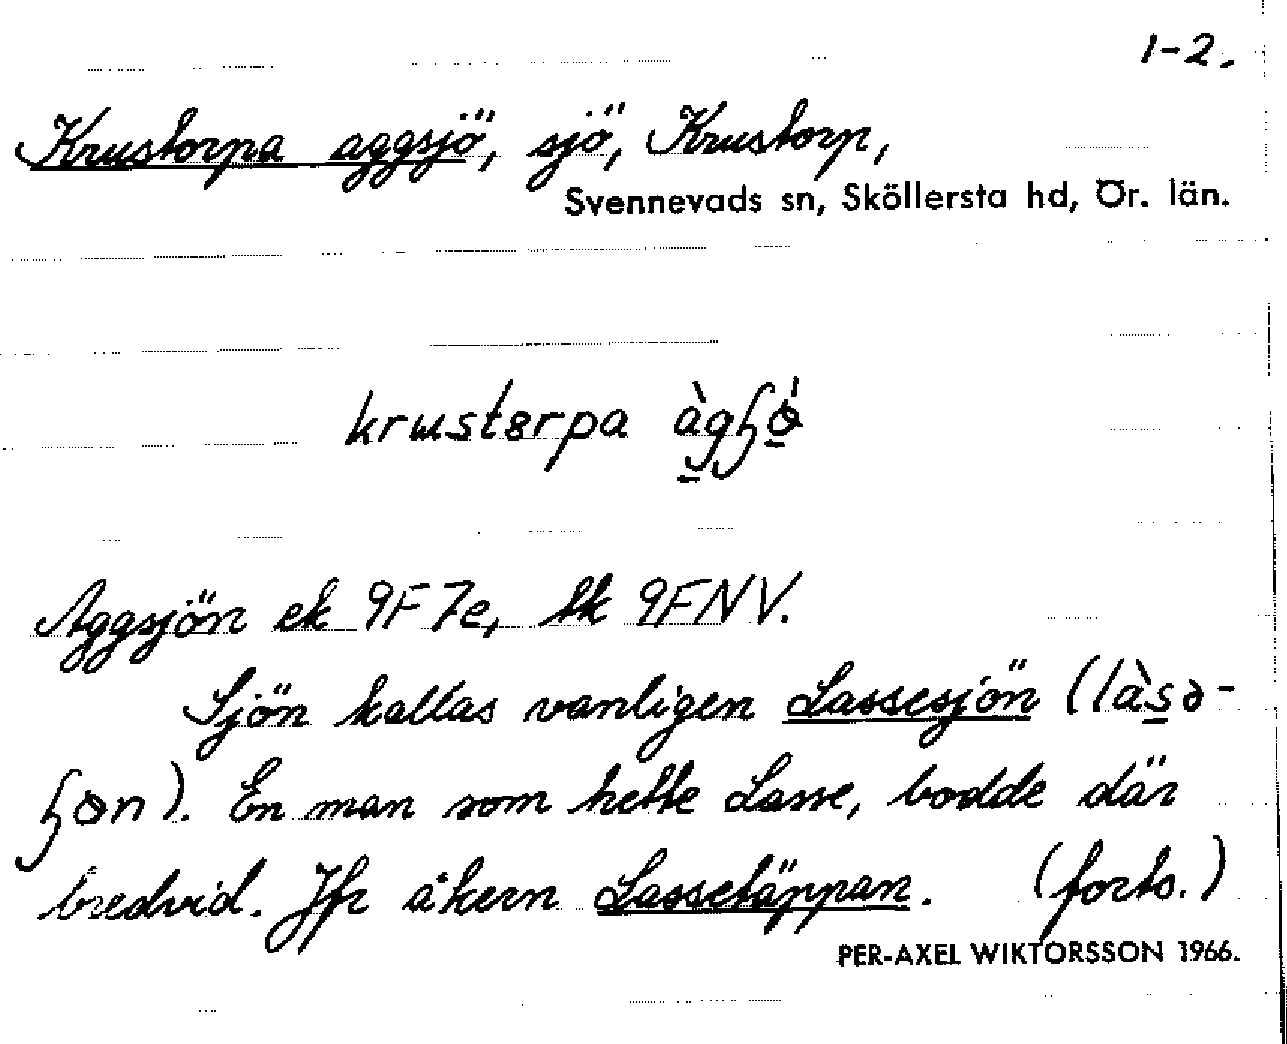 1-2.
Krustorpa aggsjö, sjö, Krustorp,
Svennevads sn, Sköllersta hd, Ör. län.
krustɵrpa
Aggsjön ek 9F7e, tk 9FNV.
Sjön kallas vanligen Lassesjön (làsə-
ɧøn). En man som hette Lasse, bodde där
bredvid. Jfr åkern Lassetäppan. (forts.)
PER-AXEL WIKTORSSON 1966.